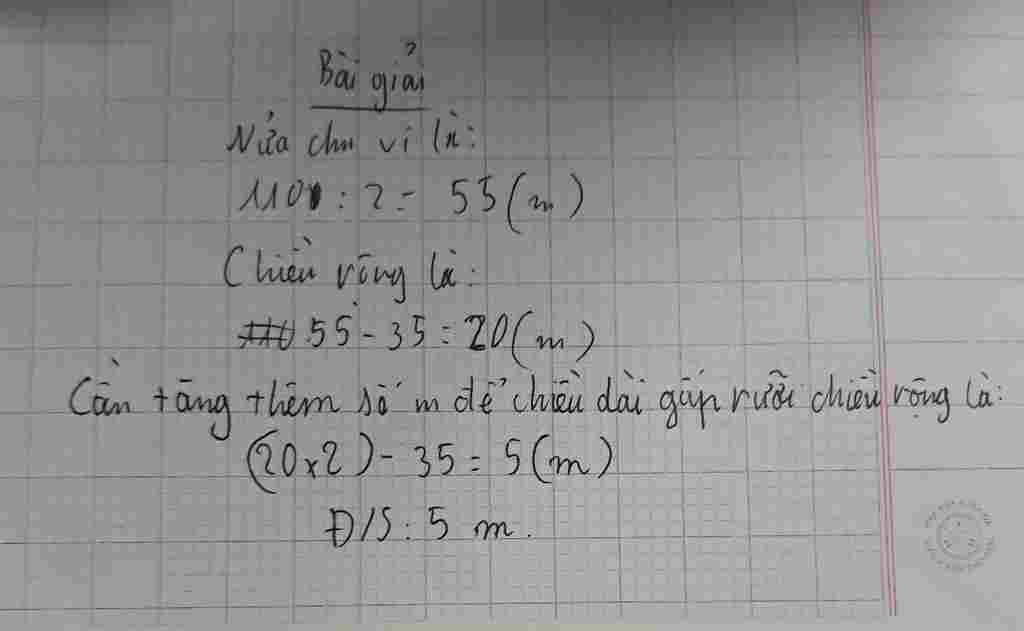 Bài giải
Nửa chu vi là:
110 : 2 = 55 (m)
Chiều rộng là:
55 - 35 = 20 (m)
Cần tăng thêm số m để chiều dài gấp rưỡi chiều rộng là:
(20 x 2) - 35 = 5 (m)
Đ/S : 5 m.